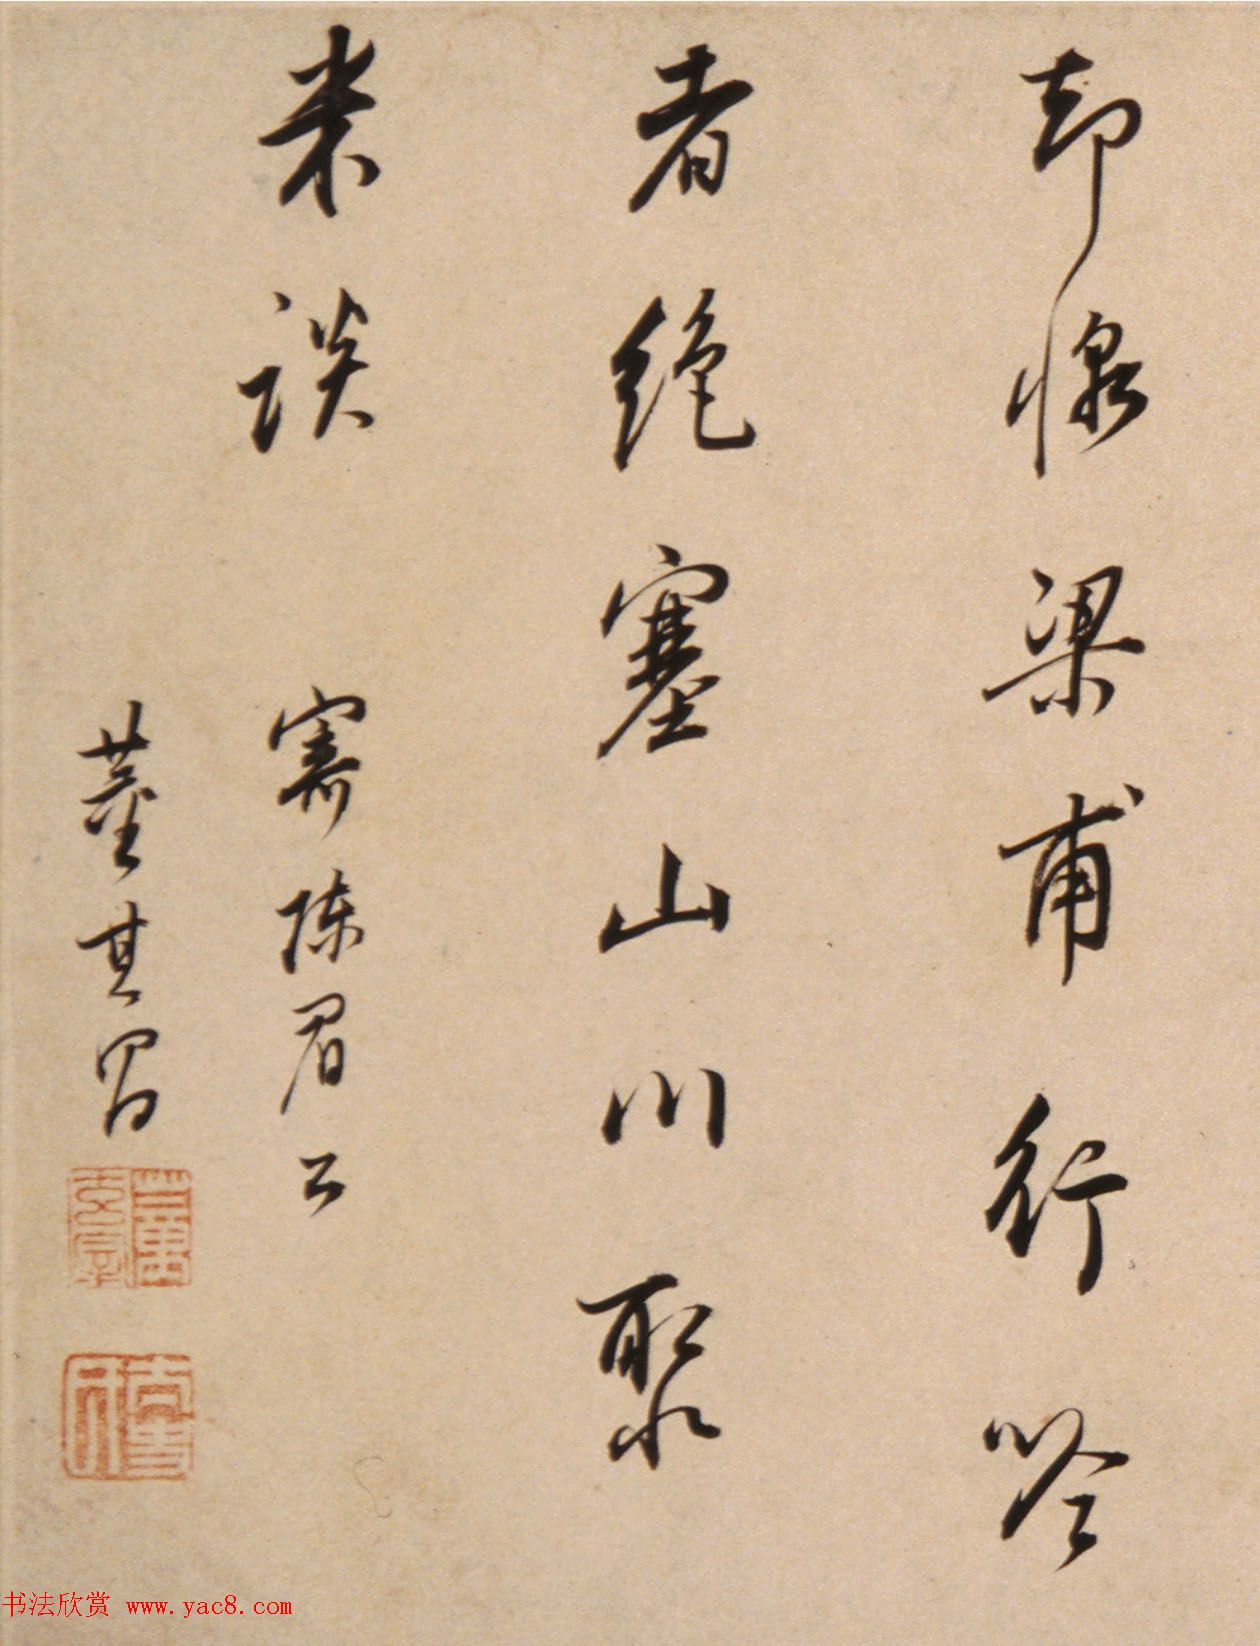 却梁甫行吟
者絶塞山川聚
米談
陳眉公
董其昌
书法欣赏 www.yac8.com